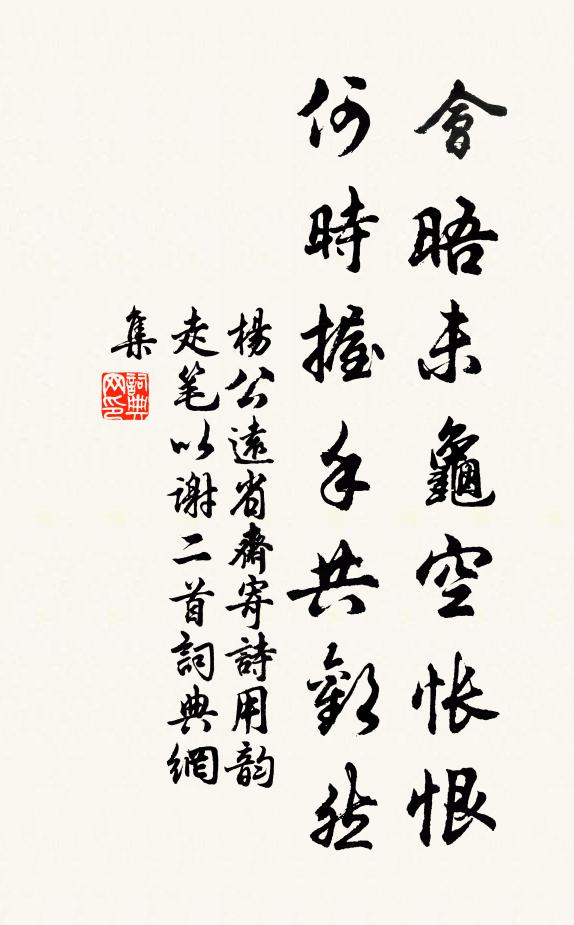 會晤未龜空悵恨
何時握手共歡然
楊公遠省齋寄詩用韵
走笔以谢二首詞典網
集
詞典
网印